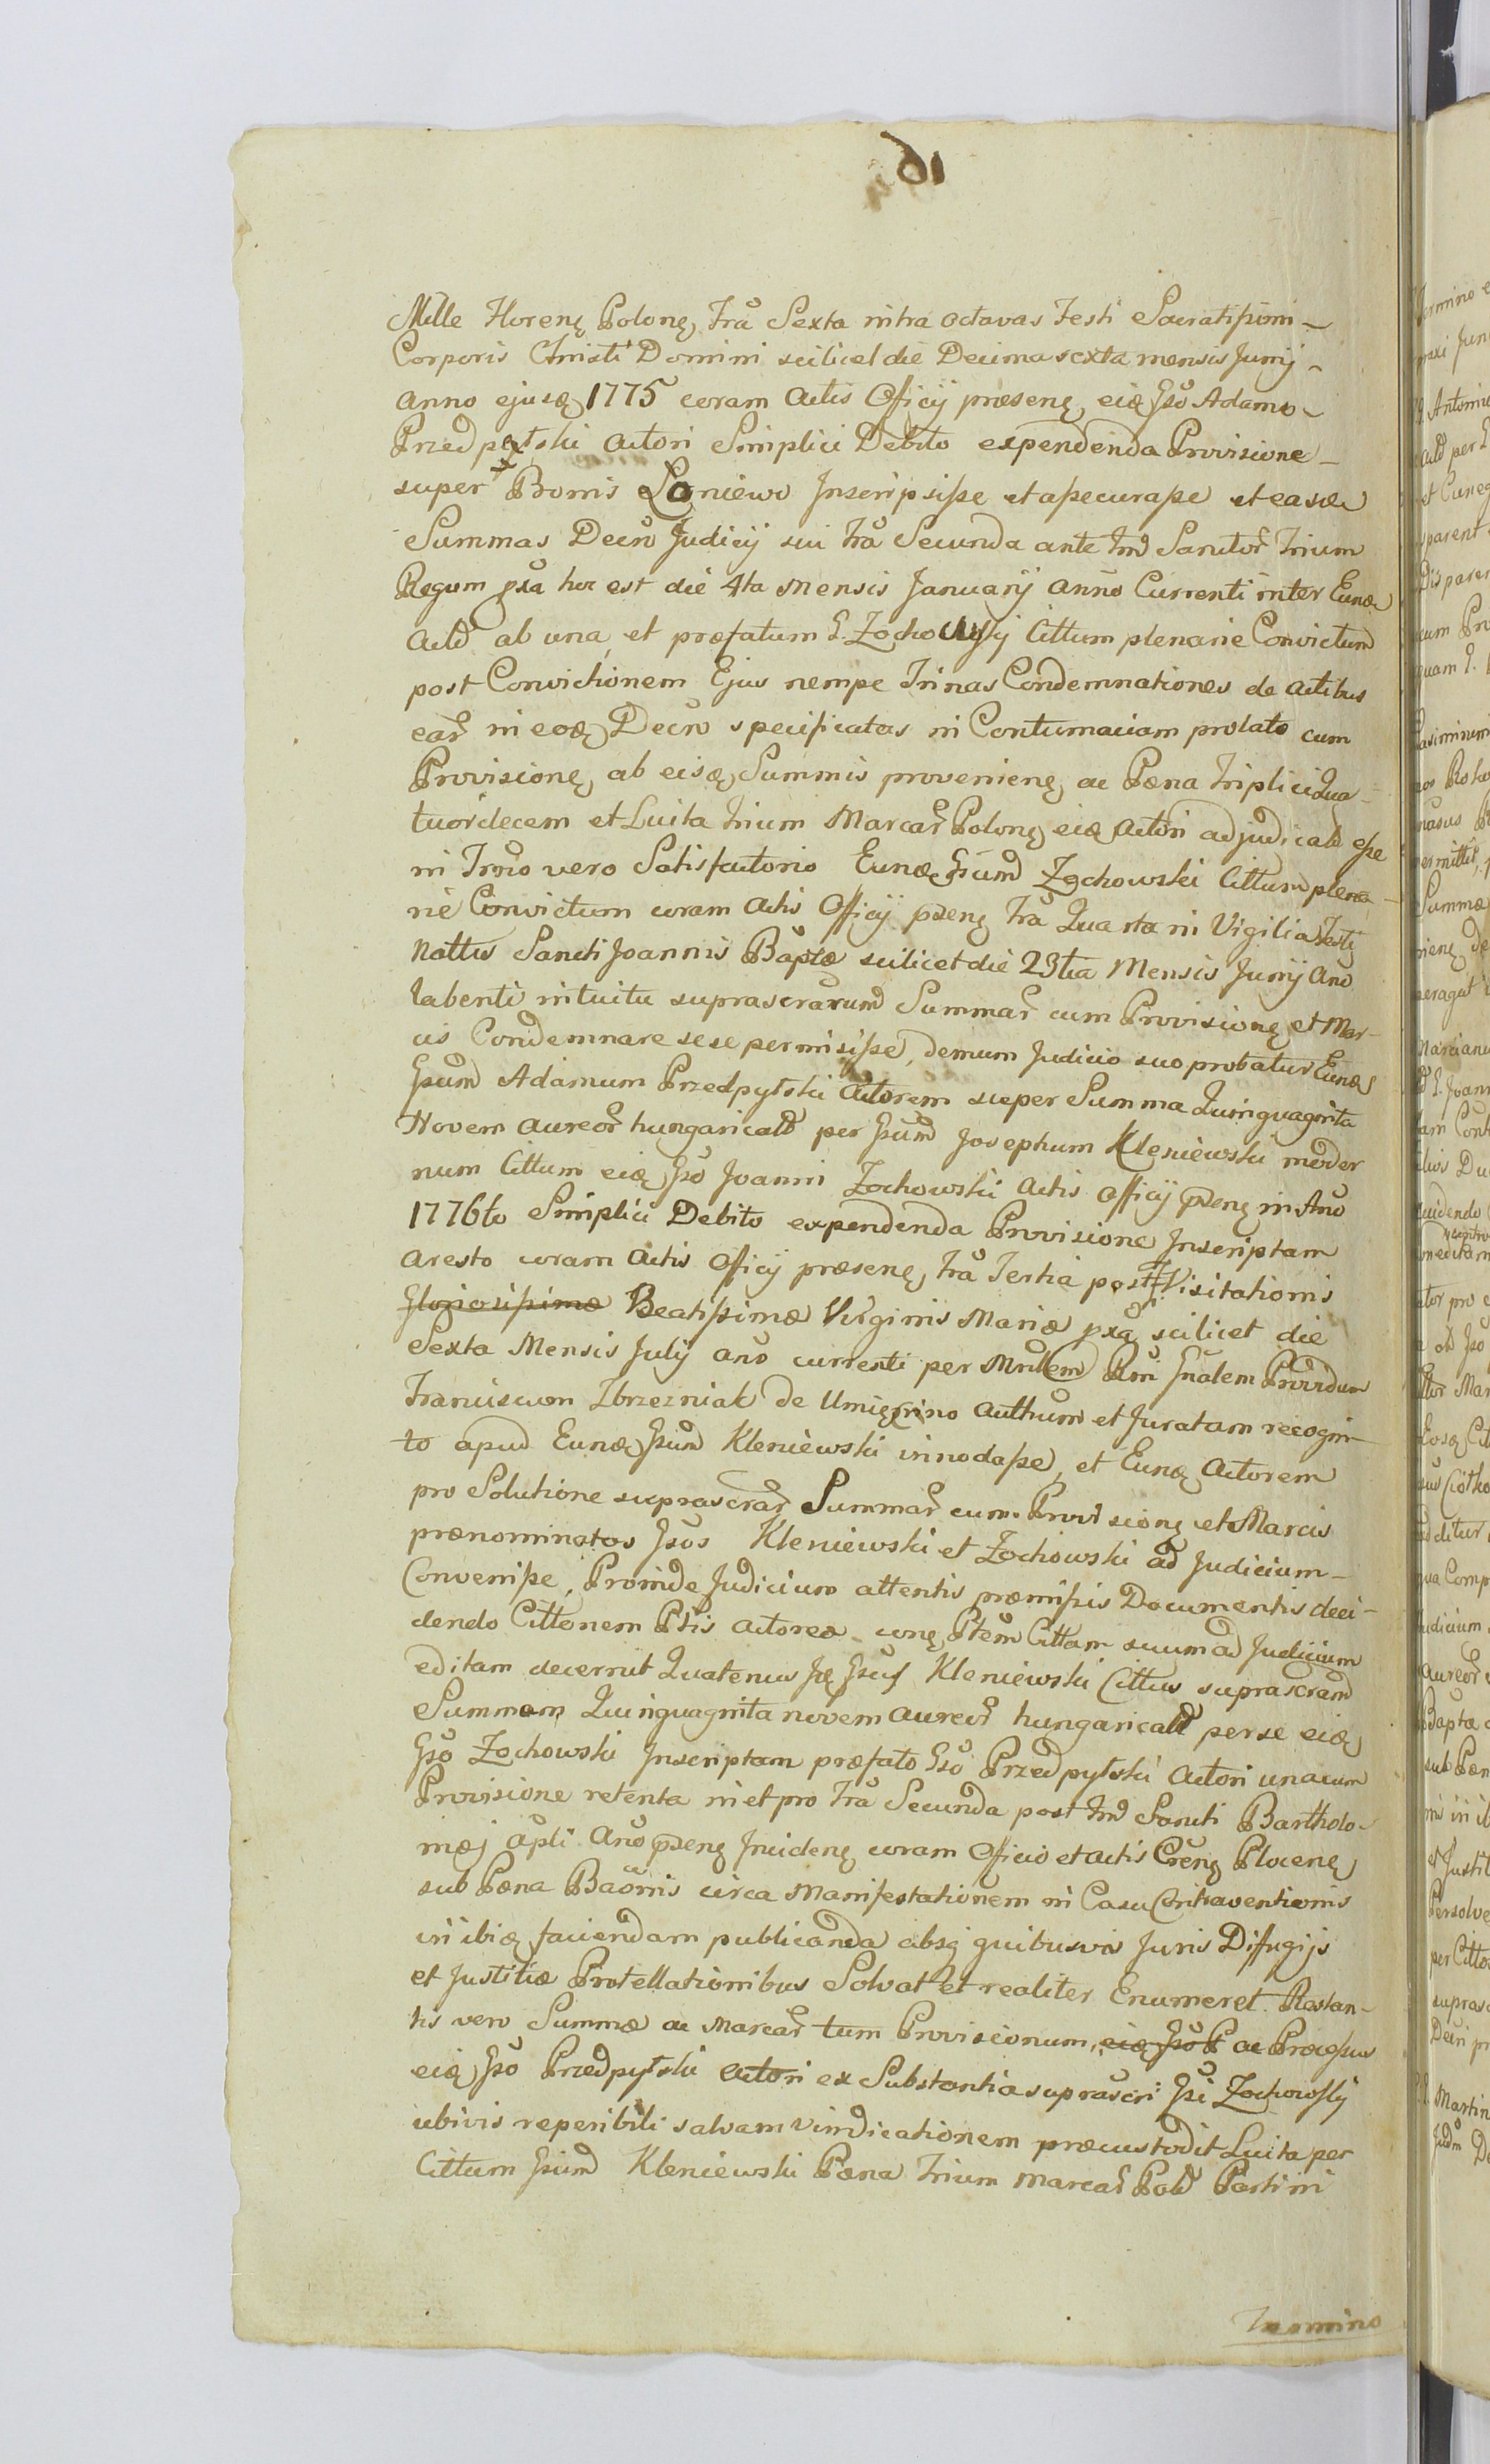 Mille Florenę Polonę, fra Sexta intra octavas Festi Sacratissimi
Corporis Christi Domini scilicet die Decima sexta mensis Junij
anno ejusdę 1775 coram Actis Officij præsenę eidę Gso Adamo
Przedpełski Actori Simplici Debito expendenda Provisione
super Bonis Łoniewo Inscripsisse et assecurasse et easdę
Summas Decro Judicij sui fra Secunda ante fm̃ Sanctor Trium
Regum pxa hoc est die 4ta Mensis Januarij anno Currenti inter Eundę
ab una, et præfatum G. Zochowskij Cittum plenarie Convictum
post Convictionem Ejus nempe Trinas Condemnationes de actibus
ear in eodę Decro specificatas in Contumaciam prolato cum
Provisionę, ab eisdę Summis provenienę, ac Pæna triplici Qua-
tuordecem et Luita trium Marcar Polonę eidę Actori adjudicatũ esse
in Trmo vero Satisfactorio Eundę Gsum Zochowski Cittum plena-
rie Convictum coram Actis Officij psenę fra Quarta in Vigilia Festj
Nattis Sancti Joannis Baptæ scilicet die 23tia Mensis Junij Ano
labenti intuitu suprascrarum Summar cum Provisionę et Mar-
cis Condemnare sese permisisse, demum Judicio suo probatur Eundę
Gsum Adamum Przedpełski Actorem super Summa Quinquaginta
Novem aureor hungaricalũ per Gsum Josephum Kleniewski moder
num Cittum eidę Gso Joanni Zochowski Actis Officij psenę in Ano
1776to Simplici Debito expendenda Provisione Inscriptam
Aresto coram Actis Officij præsenę, fra Tertia post F. Visitationis
Gloriosissimæ Beatissimæ Virginis Mariæ pxa scilicet die
Sexta Mensis Julij ano currenti per Mnlem Rni Gnalem Providum
Franciscum Zbrzezniak de Umięcino authum et Juratam recogni-
to apud Eundę Gsum Kleniewski innodasse, et Eundę Actorem
pro Solutione suprascrar Summar cum Provisionę et Marcis
prænominatos Gsos Kleniewski et Zochowski ad Judicium
Convenisse, Proinde Judicium attentis præmissis Documentis deci-
dendo Cittonem Ptis Actoreæ conę Ptem Cittam suum ad Judicium
editam decernit Quatenus Gsus Kleniewski Cittus suprascram
Summam Quinquaginta novem aureor hungaricalũ per se eidę
Gso Zochowski Inscriptam præfato Gso Przedpełski Actori unacum
Provisione retenta in et pro fra Secunda post fm̃ Sancti Bartholo-
mæj apli Ano psenę Incidenę coram Officio et actis Crenę Plocenę
sub Pæna Baonis circa Manifestationem in Casu Contraventionis
inibidę faciendam publicanda absq quibusvis Juris Diffugijs
et Justitiæ Protellationibus Solvat et realiter Enumeret. Restan-
tis vero Summæ ac Marcar tum Provisionum, eidę Gso P ac Processus
eidę Gso Przedpełski Actori ex Substantia suprascri Gsi Zochowskij
ubivis reperibili salvam vindicationem præcustodit Luita per
Cittum Gsum Kleniewski Pæna trium marcar Polũ Parti in
Termino